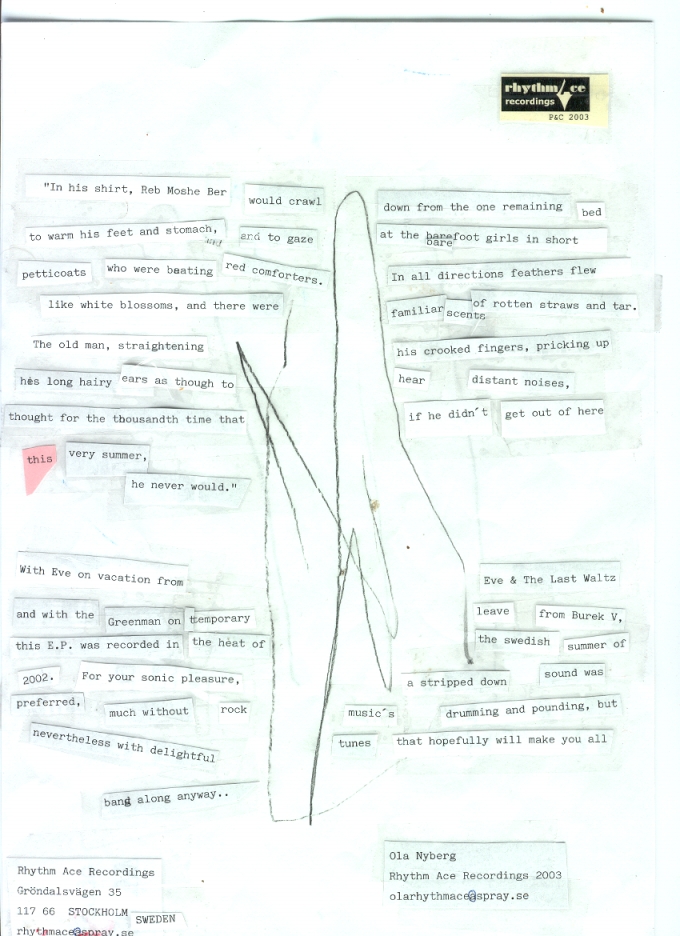 rhythm ce
recordings
P&C 2003
"In his shirt, Reb Moshe Ber would crawl down from the one remaining bed
to warm his feet and stomach, and to gaze at the barefoot girls in short
petticoats who were beating red comforters. In all directions feathers flew
like white blossoms, and there were familiar scents of rotten straws and tar.
The old man, straightening his crooked fingers, pricking up
his long hairy ears as though to hear distant noises,
thought for the thousandth time that if he didn´t get out of here
this very summer,
he never would."
With Eve on vacation from Eve & The Last Waltz
and with the Greenman on temporary leave from Burek V,
this E.P. was recorded in the heat of the swedish summer of
2002. For your sonic pleasure, a stripped down sound was
preferred, much without rock music´s drumming and pounding, but
nevertheless with delightful tunes that hopefully will make you all
bang along anyway..
Rhythm Ace Recordings
Gröndalsvägen 35
117 66 STOCKHOLM SWEDEN
rhythmace@spray.se
Ola Nyberg
Rhythm Ace Recordings 2003
olarhythmace@spray.se